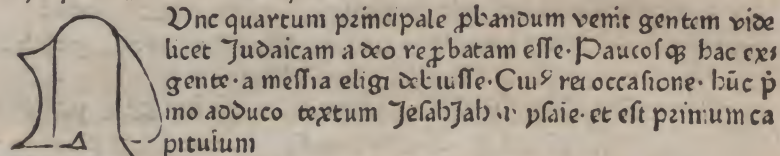 N Vnc quartum principale ꝓbandum venit gentem vide
licet Judaicam a deo reꝓbatam esse· Paucosqꝫ hac exi
gente· a messia eligi debuisse· Cuiꝰ rei occasione· hūc p̄
mo adduco textum Jesahjah ·i· ysaie· et est primum ca
pitulum